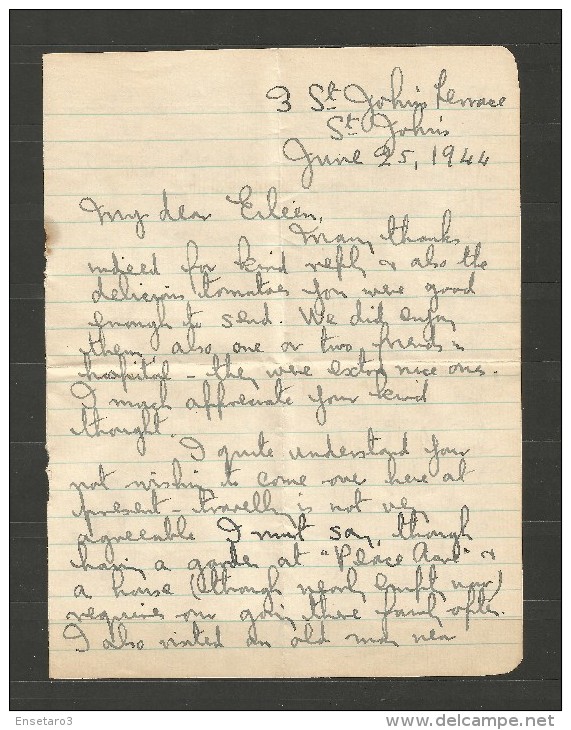 3 St John's Terrace
St John's
June 25, 1944
My dear Eileen,
Many thanks
indeed for kind reply & also the
delicious tomatoes you were good
enough to send. We did enjoy
them also one or two friends in
hospital - they were extra nice ones.
I much appreciate your kind
thought.
I quite understand your
not wishing to come over here at
present - travelling is not very
agreeable I must say, though
having a garden at "Peace" &
a house (although nearly empty now)
requires our going there fairly often.
I also visited an old man near
Ensetaro3
delcampe.net